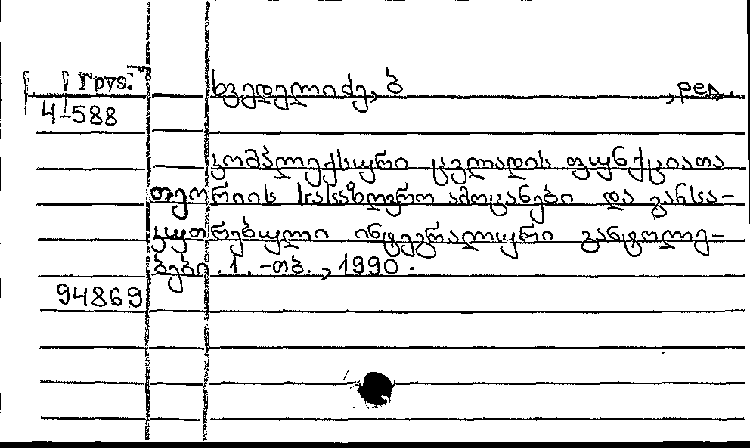 Груз.
ხვედელიძე, ბ , ред.
4-588
კომპლექსური ცვლადის ფუნქციათა
თეორიის სასაზღვრო ამოცანები და განსა-
კუთრებული ინტეგრალური განტოლე-
ბები. 1. -თბ., 1990.
94869